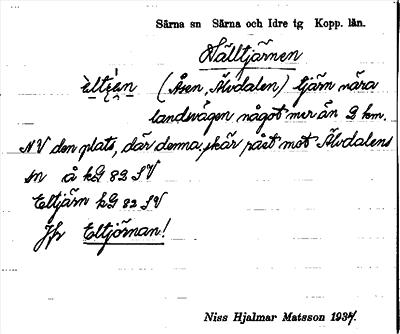 Särna sn Särna och Idre tg Kopp. län.
Hälltjärnen
(Åsen, Älvdalen) tjärn nära
landsvägen något mer än 2 km.
NV den plats, där denna skär rået mot Älvdalens
sn å kG 82 SV
Eltjärn kG 82 SV
Jfr Eltjörnan!
Niss Hjalmar Matsson 1937.